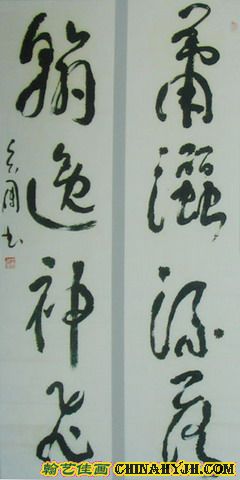 蕭灑流落
翰逸神飛
翰艺佳画 CHINAHYJH.COM